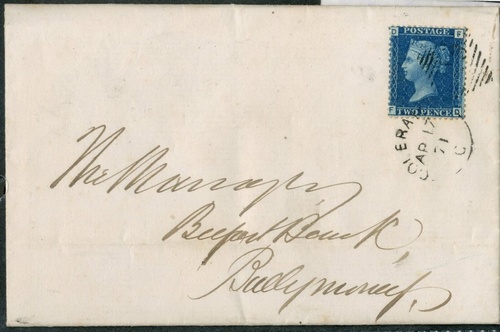 D F
POSTAGE
TWO PENCE
F D
COLERA
AP 17
71
C
The Manager
Belfast Bank,
Ballymoney.